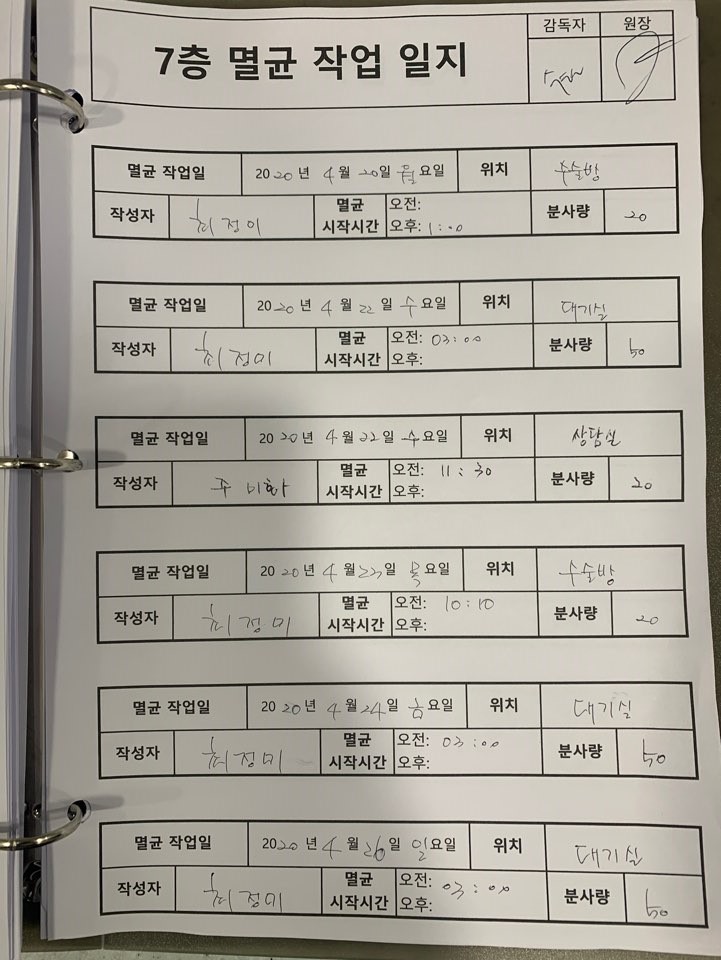 감독자 원장
7층 멸균 작업 일지
멸균 작업일 2020년 4월 20일 월요일 위치 수술방
작성자 최정미 멸균 시작시간 오전: 오후: 1:00 분사량 20
멸균 작업일 2020년 4월 22일 수요일 위치 대기실
작성자 최정미 멸균 시작시간 오전: 03:00 오후: 분사량 50
멸균 작업일 2020년 4월 22일 수요일 위치 상담실
작성자 주미화 멸균 시작시간 오전: 11:30 오후: 분사량 20
멸균 작업일 2020년 4월 23일 목요일 위치 수술방
작성자 최정미 멸균 시작시간 오전: 10:10 오후: 분사량 20
멸균 작업일 2020년 4월 24일 금요일 위치 대기실
작성자 최정미 멸균 시작시간 오전: 03:00 오후: 분사량 50
멸균 작업일 2020년 4월 26일 일요일 위치 대기실
작성자 최정미 멸균 시작시간 오전: 03:00 오후: 분사량 50